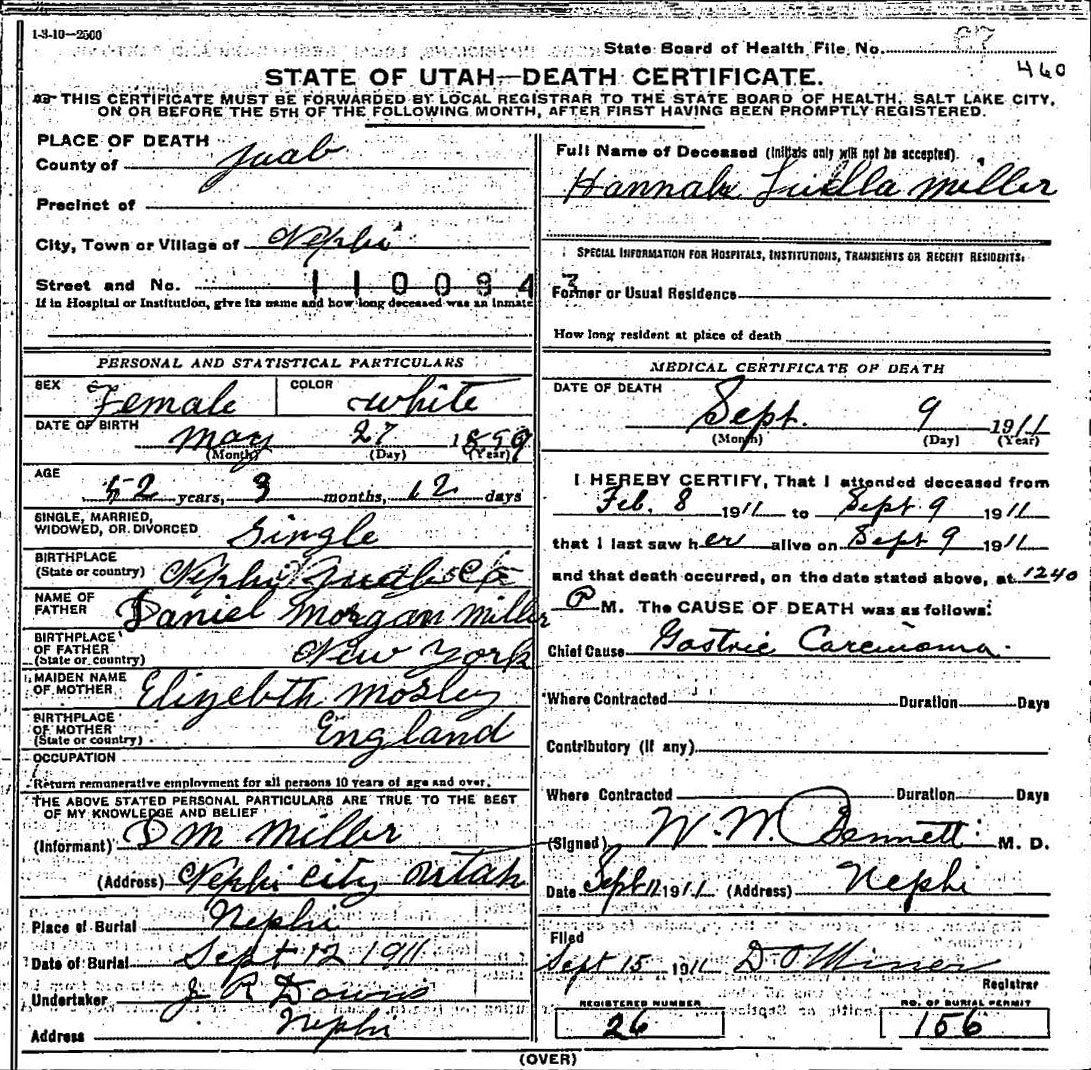 1-3-10—2500
State Board of Health File No. 67
460
STATE OF UTAH—DEATH CERTIFICATE.
THIS CERTIFICATE MUST BE FORWARDED BY LOCAL REGISTRAR TO THE STATE BOARD OF HEALTH, SALT LAKE CITY,
ON OR BEFORE THE 5TH OF THE FOLLOWING MONTH, AFTER FIRST HAVING BEEN PROMPTLY REGISTERED.
PLACE OF DEATH
County of Juab
Precinct of
City, Town or Village of Nephi
Street and No. 1100943
If in Hospital or Institution, give its name and how long deceased was an inmate
Full Name of Deceased (Initials only will not be accepted).
Hannah Luella Miller
SPECIAL INFORMATION FOR HOSPITALS, INSTITUTIONS, TRANSIENTS OR RECENT RESIDENTS:
Former or Usual Residence
How long resident at place of death
PERSONAL AND STATISTICAL PARTICULARS
SEX Female COLOR white
DATE OF BIRTH May 27 1859
(Month) (Day) (Year)
AGE 52 years, 3 months, 12 days
SINGLE, MARRIED,
WIDOWED, OR DIVORCED Single
BIRTHPLACE
(State or country) Nephi Juab Co
NAME OF
FATHER Daniel Morgan Miller
BIRTHPLACE
OF FATHER
(State or country) New York
MAIDEN NAME
OF MOTHER Elizebth Mosley
BIRTHPLACE
OF MOTHER
(State or country) England
OCCUPATION
Return remunerative employment for all persons 10 years of age and over.
THE ABOVE STATED PERSONAL PARTICULARS ARE TRUE TO THE BEST
OF MY KNOWLEDGE AND BELIEF
(Informant) D M Miller
(Address) Nephi City Utah
Place of Burial Nephi
Date of Burial Sept 12 1911
Undertaker J R Downs
Address Nephi
MEDICAL CERTIFICATE OF DEATH
DATE OF DEATH
Sept. 9 1911
(Month) (Day) (Year)
I HEREBY CERTIFY, That I attended deceased from
Feb. 8 1911 to Sept 9 1911
that I last saw her alive on Sept 9 1911
and that death occurred, on the date stated above, at 1240
P M. The CAUSE OF DEATH was as follows:
Chief Cause Gastric Carcinoma.
Where Contracted Duration Days
Contributory (if any)
Where Contracted Duration Days
(Signed) W. W. Bennett M. D.
Date Sept 11 1911 (Address) Nephi
Filed
Sept 15 1911 D O Miner
Registrar
REGISTERED NUMBER NO. OF BURIAL PERMIT
26 156
(OVER)